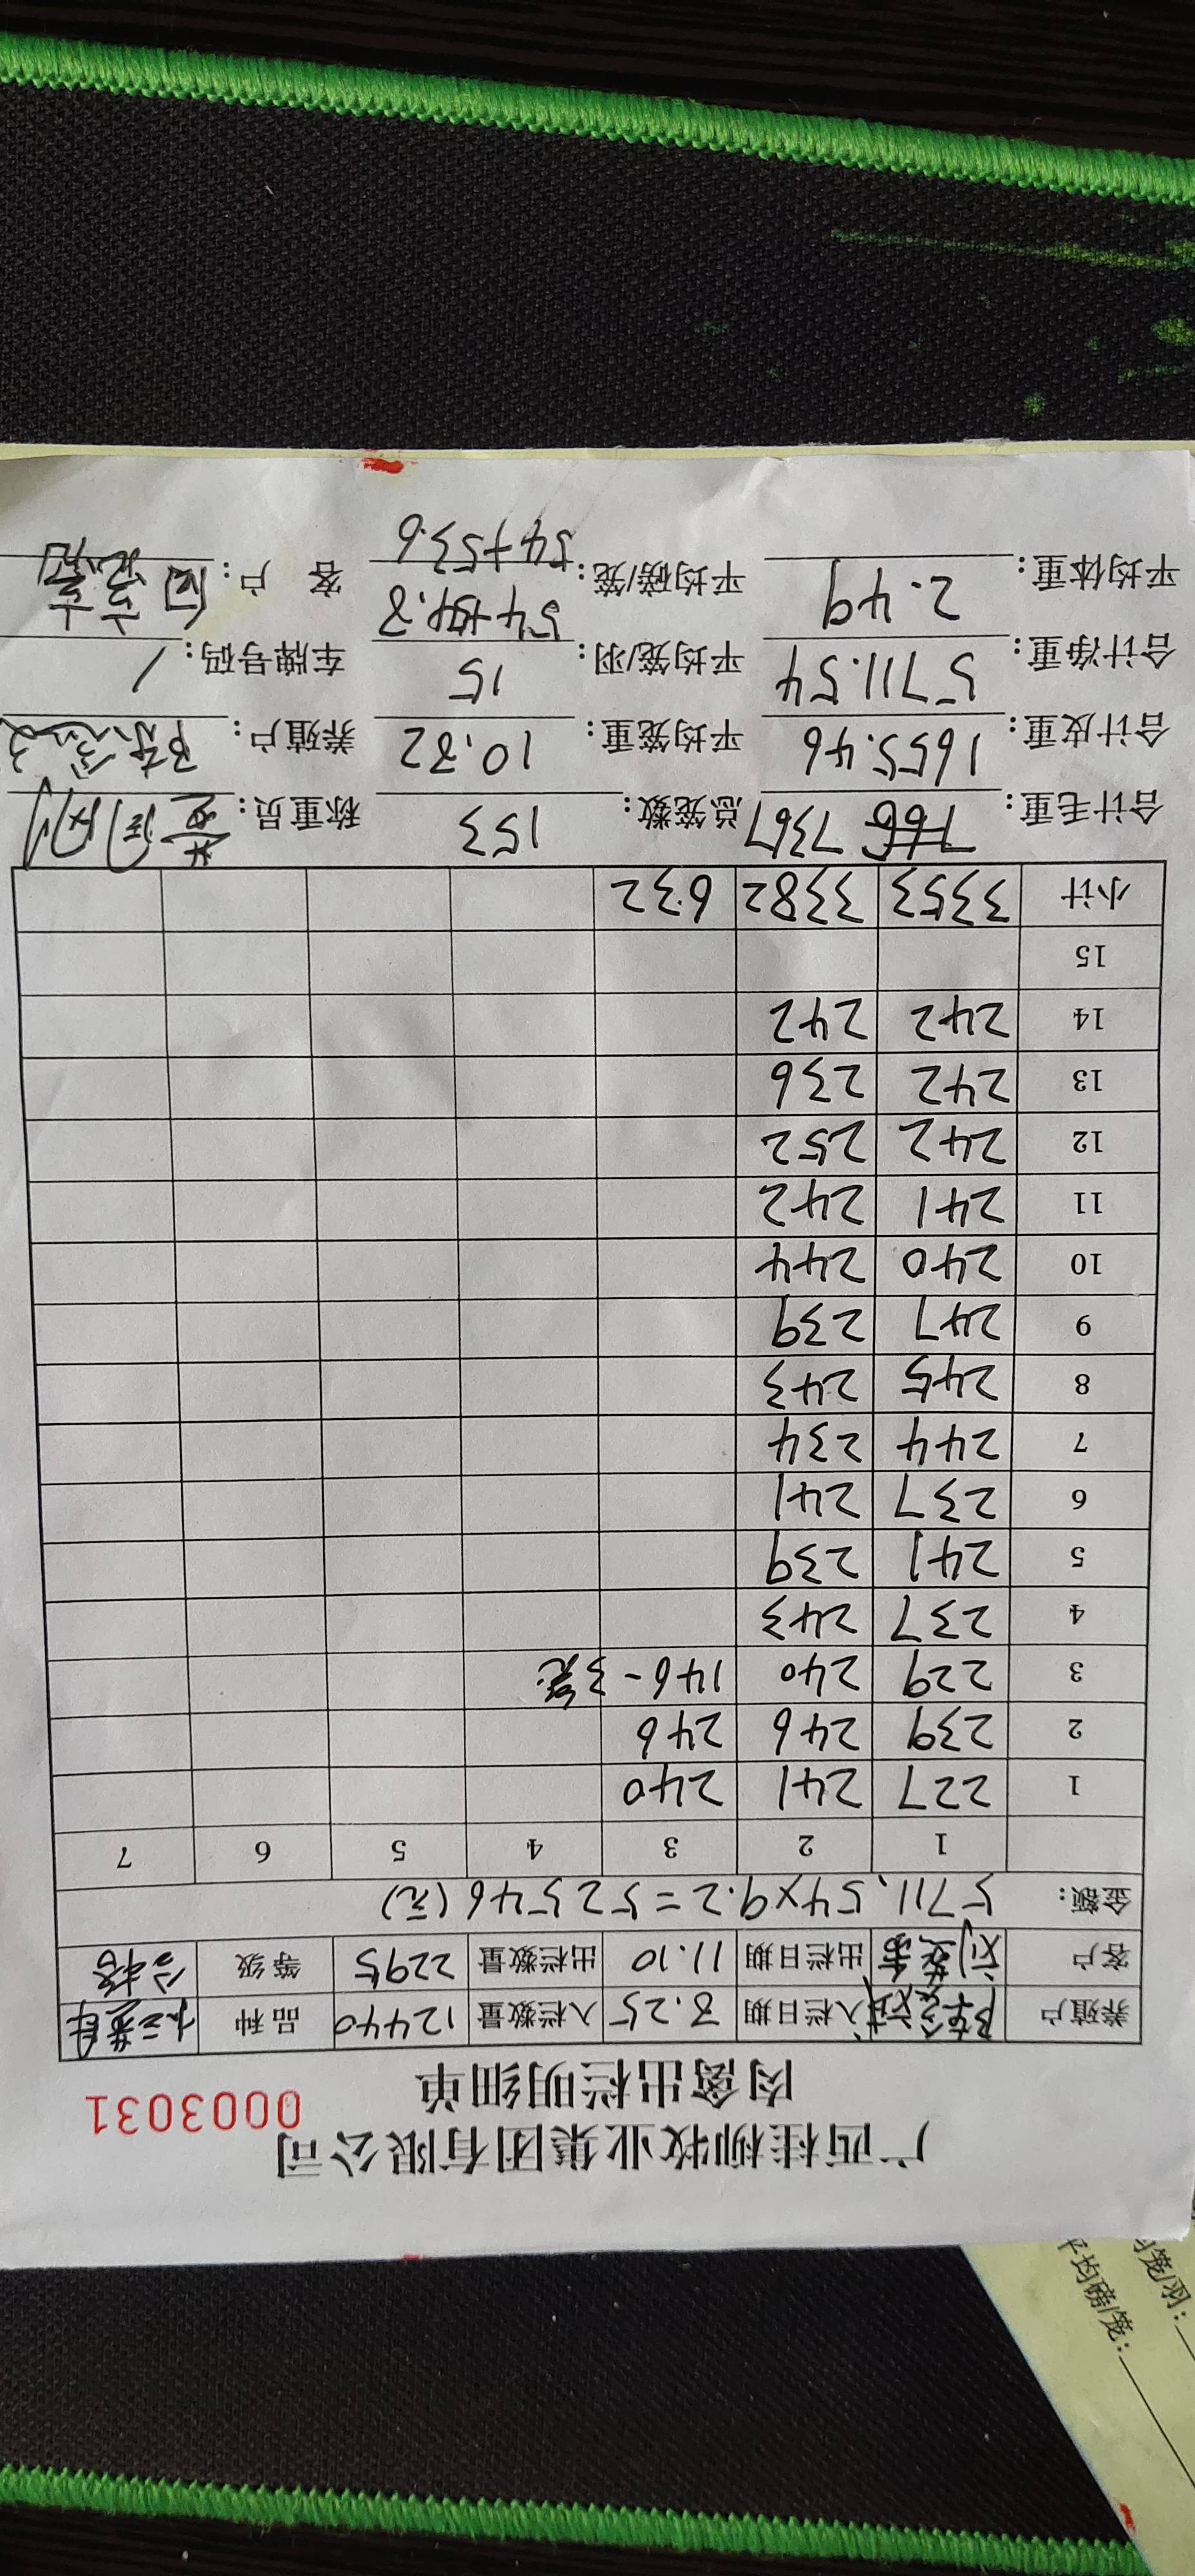 广西桂柳牧业集团有限公司
肉禽出栏明细单 0003031
养殖户 入栏日期 8.25 入栏数量 12440 品种
客户 出栏日期 11.10 出栏数量 2295 等级 合格
金额: 5711.54×9.2=52546(元)
1 2 3 4 5 6 7
1 227 241 240
2 239 246 246
3 229 240 146-3笼
4 237 243
5 241 239
6 237 241
7 244 234
8 245 243
9 247 239
10 240 244
11 241 242
12 242 252
13 242 236
14 242 242
15
小计 3353 3382 632
合计毛重: 7367 总笼数: 153 称重员:
合计皮重: 1655.46 平均笼重: 10.82 养殖户:
合计净重: 5711.54 平均笼/羽: 15 车牌号码: /
平均体重: 2.49 平均磅/笼: 客 户:
54+53.6
均笼/羽:
平均磅/笼: